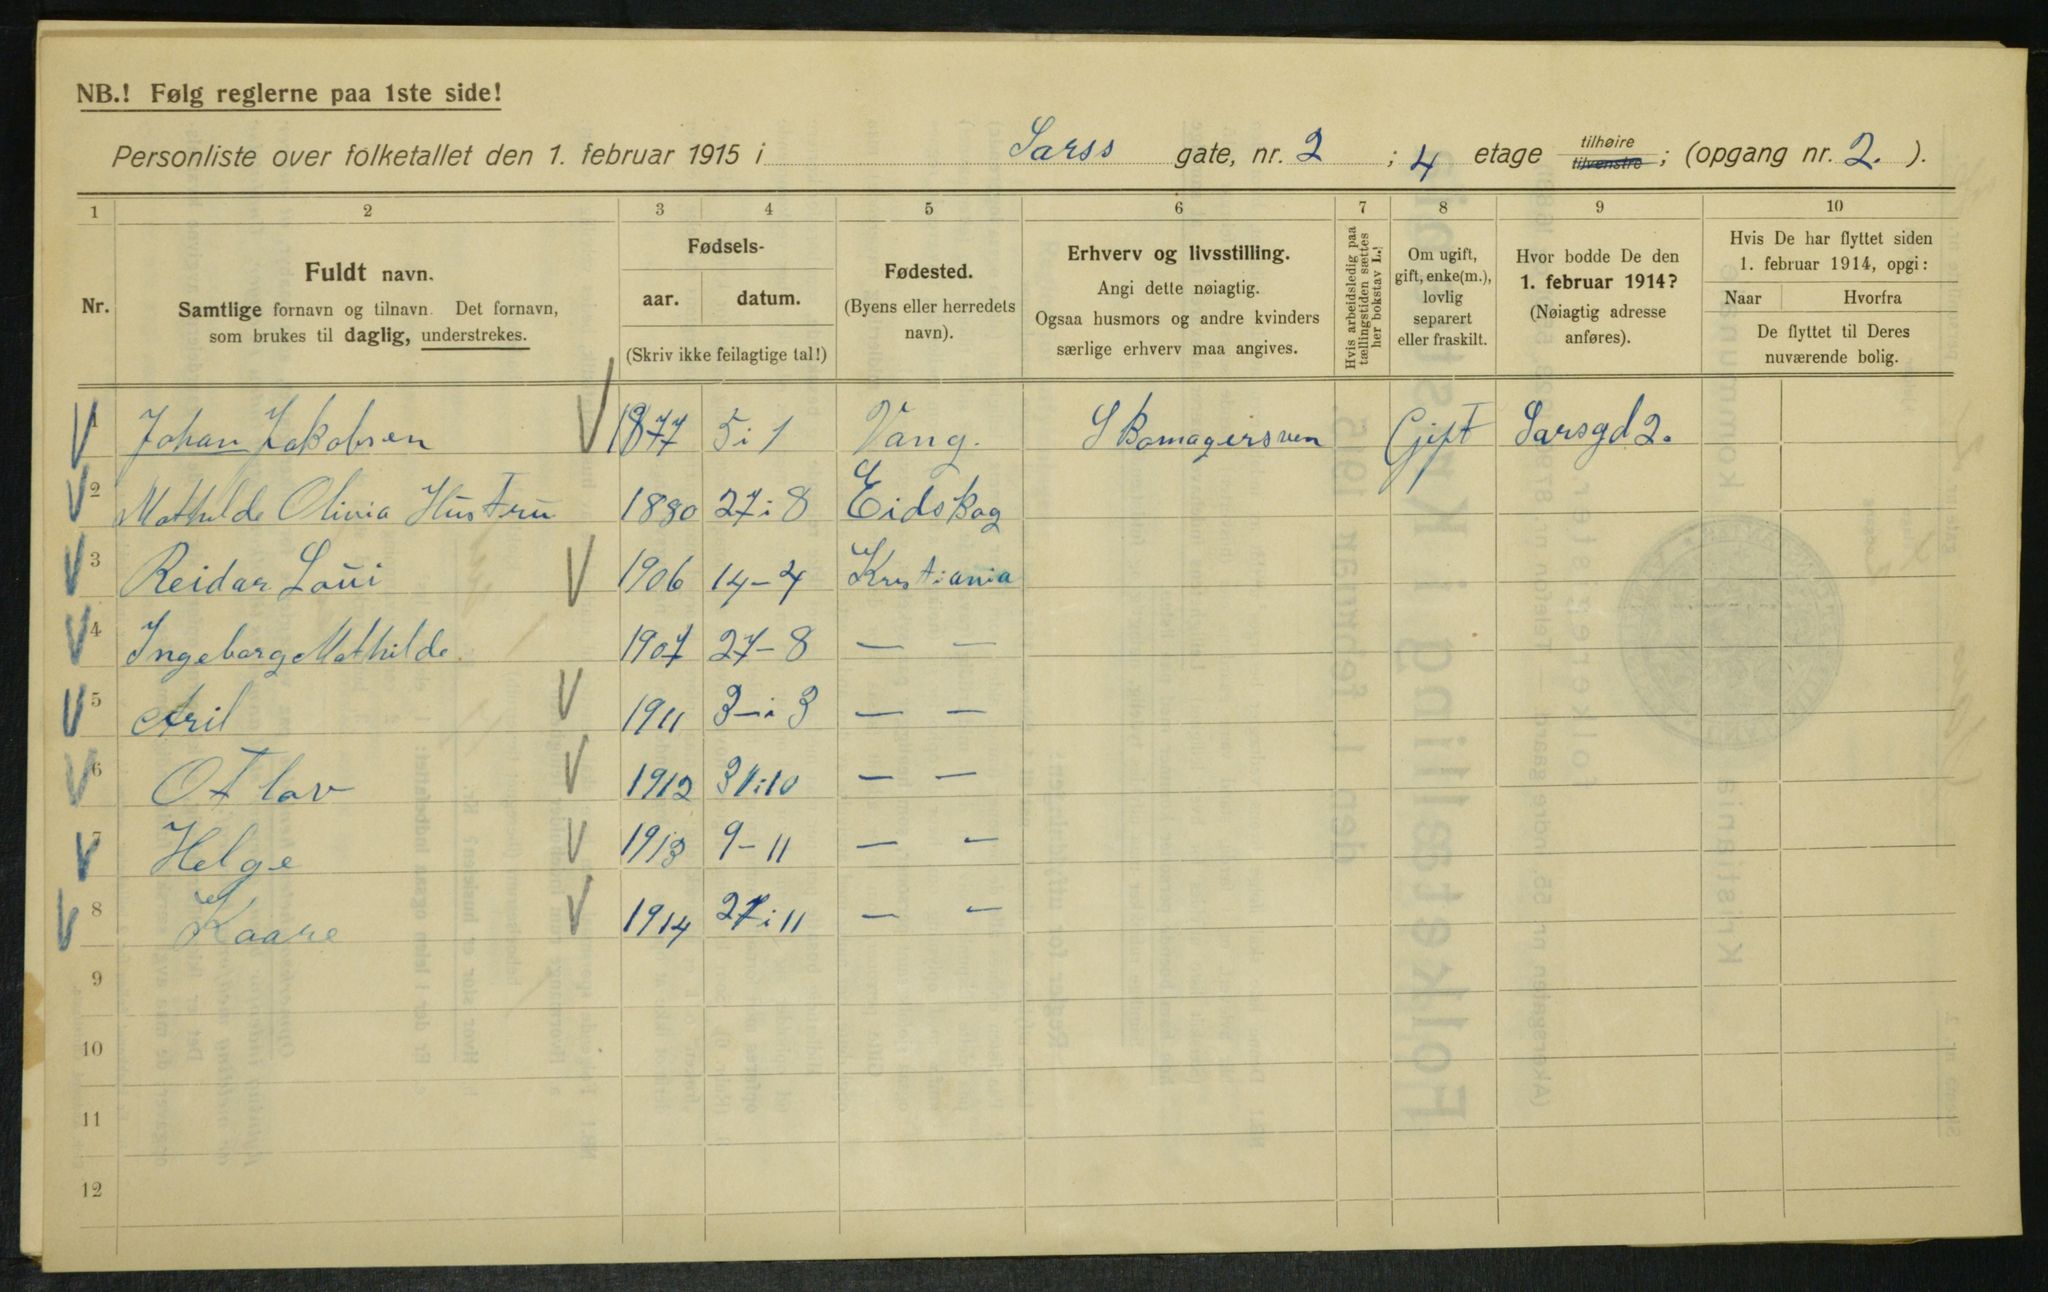 NB.! Følg reglerne paa 1ste side!
Personliste over folketallet den 1. februar 1915 i Sarss gate, nr. 2 ; 4 etage tilhøire tilvenstre ; (opgang nr. 2. ).
1 2 3 4 5 6 7 8 9 10
Nr.
Fuldt navn.
Samtlige fornavn og tilnavn. Det fornavn,
som brukes til daglig, understrekes.
Fødsels-
aar. datum.
(Skriv ikke feilagtige tal!)
Fødested.
(Byens eller herredets
navn).
Erhverv og livsstilling.
Angi dette nøiagtig.
Ogsaa husmors og andre kvinders
særlige erhverv maa angives.
Hvis arbeidsledig paa
tællingstiden sættes
her bokstav L.!
Om ugift,
gift, enke(m.),
lovlig
separert
eller fraskilt.
Hvor bodde De den
1. februar 1914?
(Nøiagtig adresse
anføres).
Hvis De har flyttet siden
1. februar 1914, opgi:
Naar Hvorfra
De flyttet til Deres
nuværende bolig.
1 Johan Jakobsen 1877 5 i 1 Vang. Skomagersven Gift Sarsgd 2.
2 Mathilde Olivia Hustru 1880 27 i 8 Eidskog
3 Reidar Loui 1906 14 - 4 Kristiania
4 Ingeborg Mathilde 1907 27 - 8 — —
5 Aril 1911 3 - i 3 — —
6 Otlav 1912 31 i 10 — —
7 Helge 1913 9 - 11 — —
8 Kaare 1914 27 i 11 — —
9
10
11
12